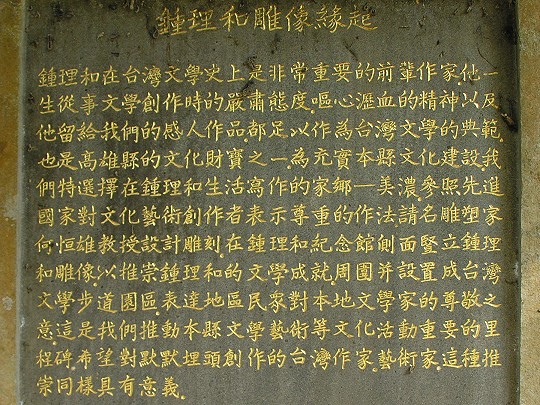 鍾理和雕像緣起
鍾理和在台灣文學史上是非常重要的前輩作家他一
生從事文學創作時的嚴肅態度.嘔心瀝血的精神以及
他留給我們的感人作品.都足以作為台灣文學的典範.
也是高雄縣的文化財寶之一.為充實本縣文化建設.我
們特選擇在鍾理和生活寫作的家鄉—美濃.參照先進
國家對文化藝術創作者表示尊重的作法.請名雕塑家
何恒雄教授設計雕刻.在鍾理和紀念館側面豎立鍾理
和雕像.以推崇鍾理和的文學成就.周圍并設置成台灣
文學步道園區.表達地區民眾對本地文學家的尊敬之
意.這是我們推動本縣文學藝術等文化活動重要的里
程碑.希望對默默埋頭創作的台灣作家.藝術家.這種推
崇同樣具有意義.